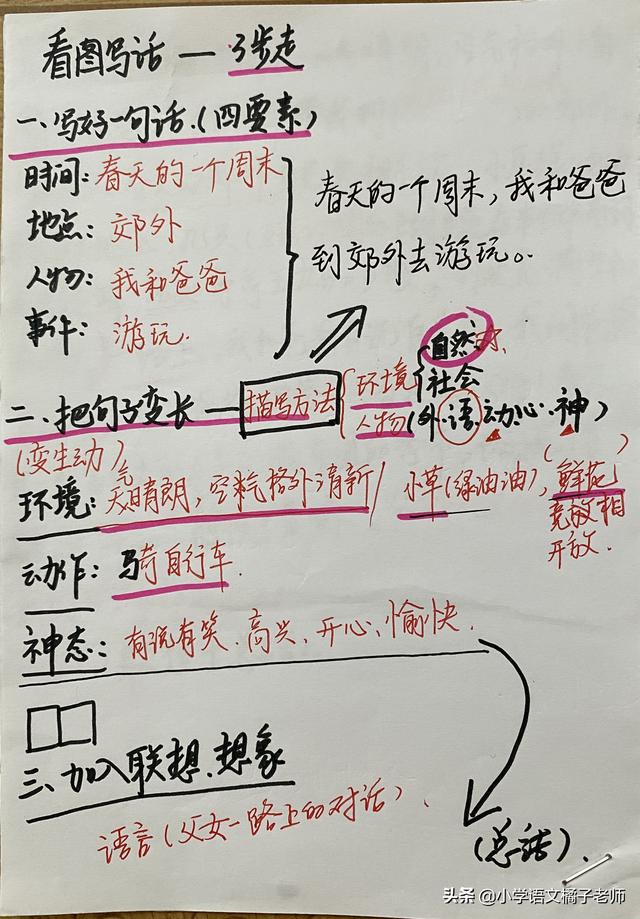 看图写话 — 3步走
一、写好一句话.(四要素)
时间: 春天的一个周末
地点: 郊外
人物: 我和爸爸
事件: 游玩.
春天的一个周末,我和爸爸
到郊外去游玩。
二、把句子变长 — 描写方法
(变生动)
环境
自然
社会
人物 (外.语.动.心.神)
环境: 天气晴朗,空气格外清新/ 小草(绿油油),鲜花( )
竞放相
开放.
动作: 骑自行车.
神态: 有说有笑、高兴、开心、愉快.
三、加入联想、想象
语言(父女一路上的对话).
(总结).
头条 @小学语文橘子老师